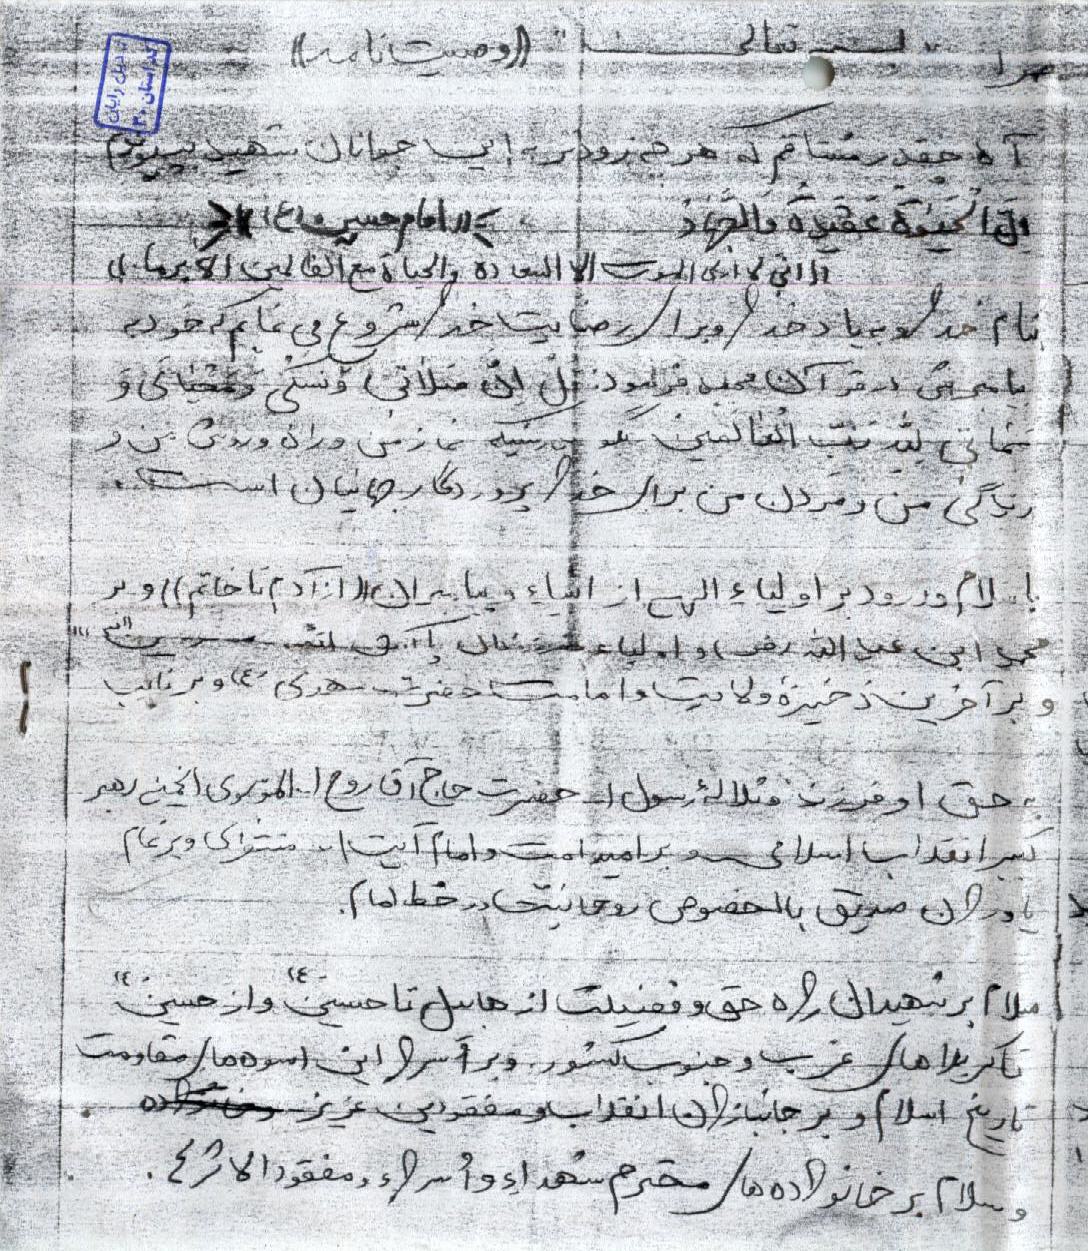 بسمه تعالی ((وصیت نامه))
آه چقدر مشتاقم که هر چه زودتر به این جوانان شهید بپیوندم
ان الحیوة عقیدة والجهاد ((امام حسین (ع)))
((انی لا اری الموت الا السعاده والحیاة مع الظالمین الا برما))
بنام خدا و به یاد خدا و برای رضایت خدا شروع می نمایم که خود به
پیامبرش در قرآن مجید فرمود: قل ان صلاتی و نسکی و محیای و
مماتی لله رب العالمین بگو بدرستیکه نماز من و راه و روش من و
زندگی من و مردن من برای خدا پروردگار جهانیان است.
با سلام و درود بر اولیاء الهی از انبیاء و پیامبران ((از آدم تا خاتم)) و بر
محمد ابن عبدالله (ص) و اولیاء
و بر آخرین ذخیرهٔ ولایت و امامت حضرت مهدی (ع) و بر نائب
به حق او فرزند سلالهٔ رسول ا... حضرت حاج آقا روح ا... الموسوی الخمینی رهبر
کبیر انقلاب اسلامی و بر امید امت و امام آیت ا... منتظری و بر تمام
یاوران صدیق بالخصوص روحانیت در خط امام.
سلام بر شهیدان راه حق و فضیلت از هابیل تا حسین (ع) و از حسین (ع)
تا کربلاهای غرب و جنوب کشور و بر اسرا این اسوه های مقاومت
تاریخ اسلام و بر جانبازان انقلاب و مفقودین عزیز
و سلام بر خانواده های محترم شهداء و اُسراء و مفقودالاثرع.